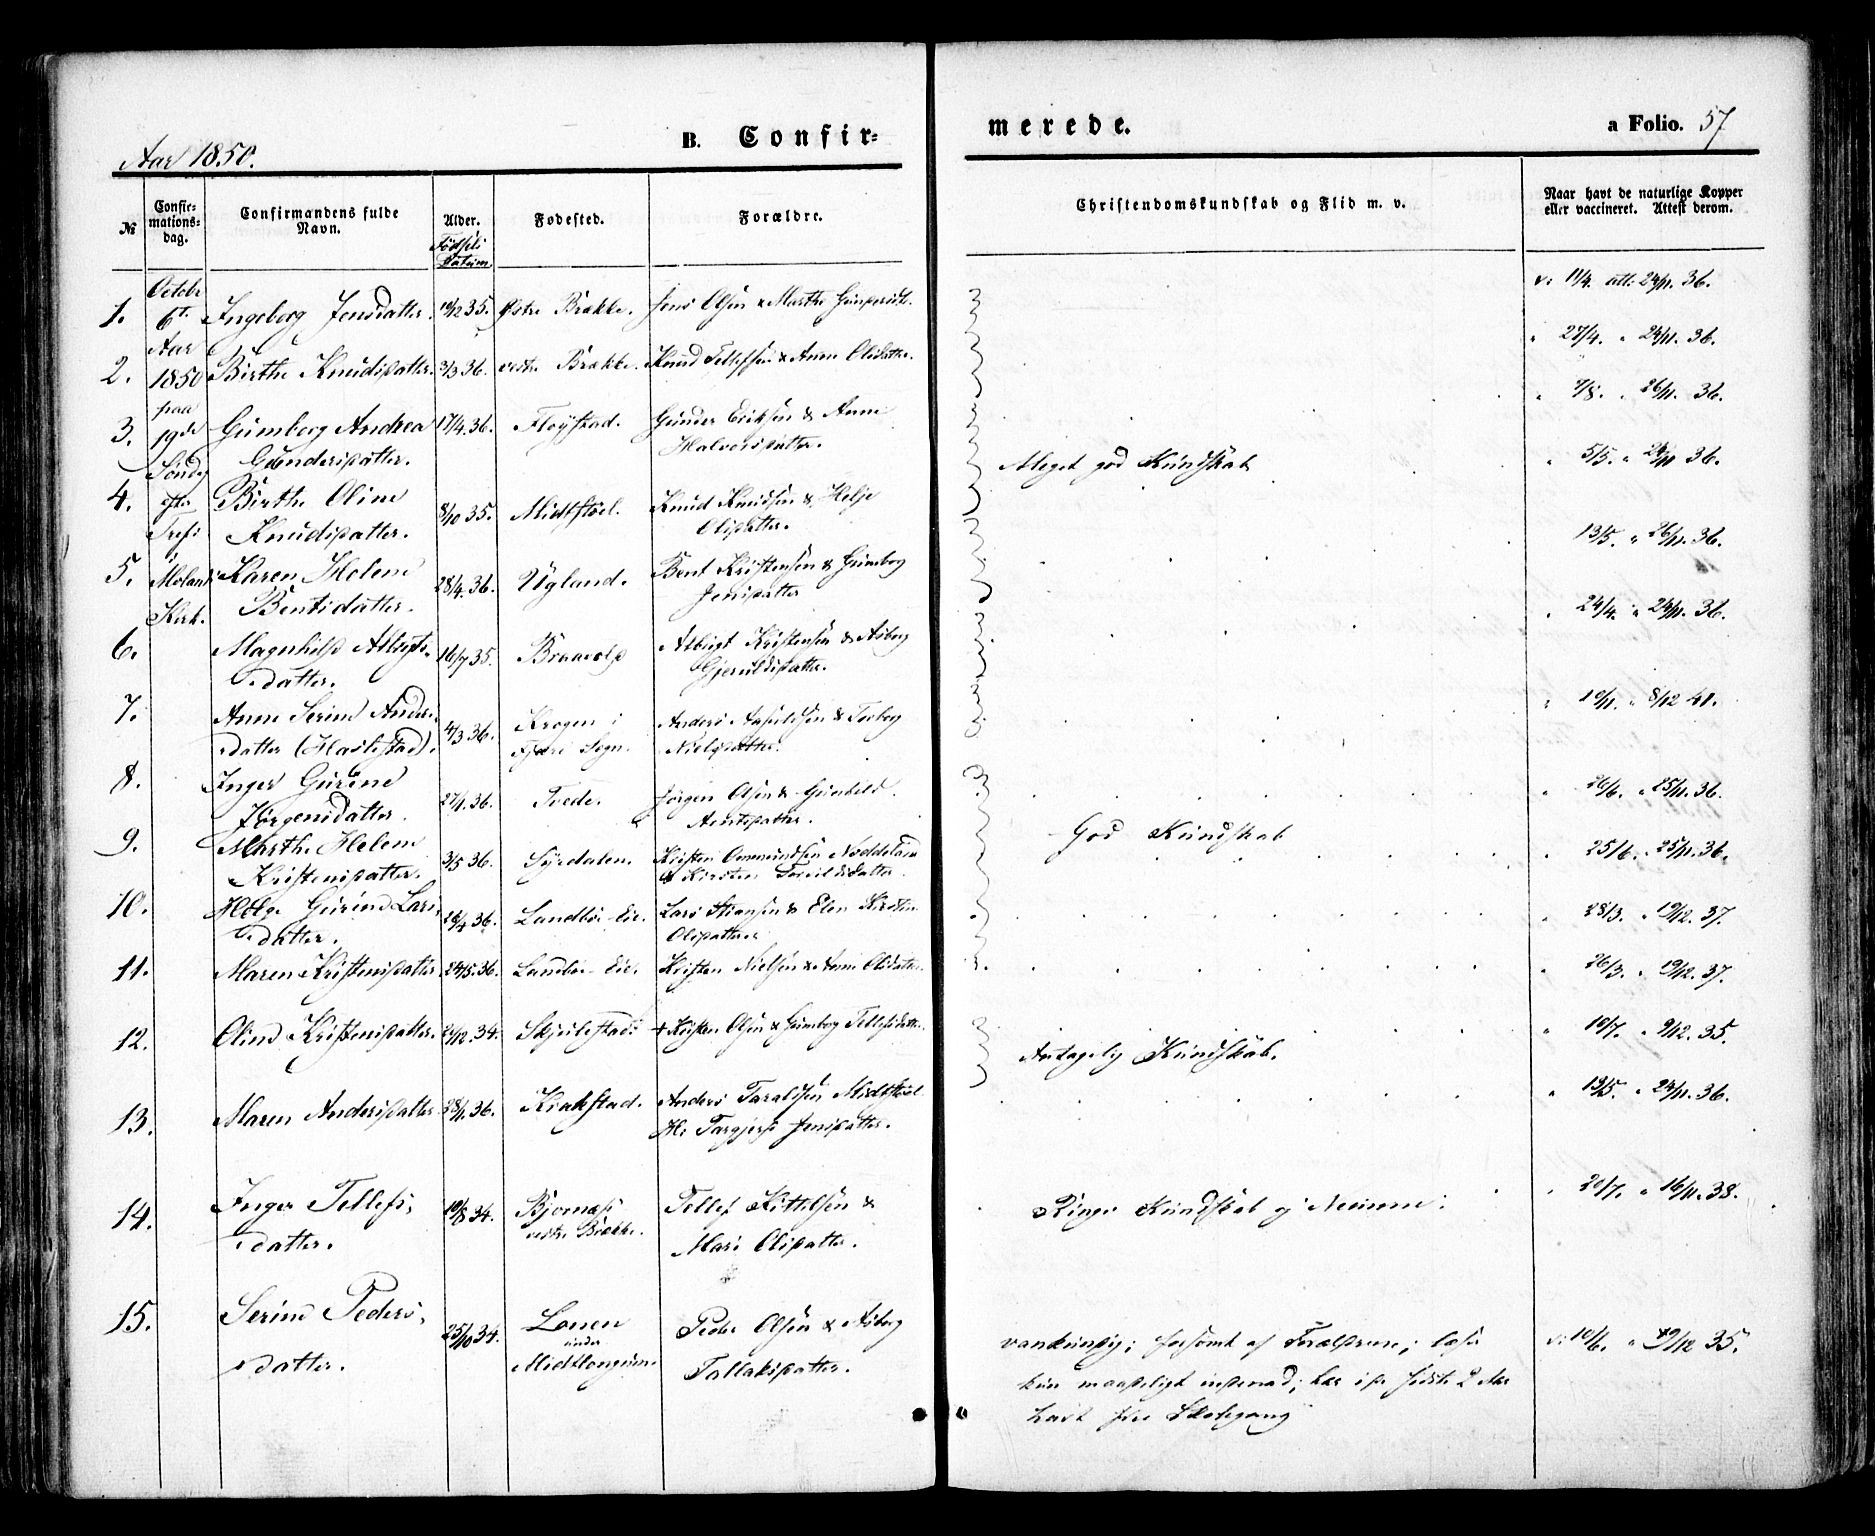 Aar 1850.
B. Confir-
merede.
a Folio. 57
№
Confir-
mations-
dag.
Confirmandens fulde
Navn.
Alder.
Fødsels
Datum
Fødested.
Forældre.
Christendomskundskab og Flid m. v.
Naar havt de naturlige Kopper
eller vaccineret. Attest derom.
Octobr
6te
Aar
1850
paa
19de
Søndag
efter
Trefs
i
Molands
Kirk.
1. Ingeborg Jensdatter. 10/12 35. Østre Brække. Jens Olsen & Marthe
v: 11/4. att: 24/11. 36.
2. Birthe Knudsdatter. 3/3 36. vestre Brække. Knud Tellefsen & Anne Olsdatter.
" 27/4. " 24/11. 36.
3. Gumborg Andrea 17/4. 36. Fløystad. Gunder Eriksen & Anne
Gundersdatter. Halvorsdatter.
" 7/8. " 26/11. 36.
Meget god Kundskab
4. Birthe Oline 8/10 35. Midtstøel. Knud Knudsen & Helje
Knudsdatter. Olsdatter.
" 5/5. " 24/11 36.
5. Karen Helene 28/4. 36. Ugland. Bent Kristensen & Gumborg
Bentsdatter. Jensdatter
13/5. " 26/11. 36.
6. Magnhild Albregts- 16/7 35. Braavold Albregt Kristensen & Asborg
datter. Gjeruldsdatter.
" 24/4. " 24/11. 36.
7. Anne Serine Anders- 4/3 36. Krogen i Anders Aasuldsen & Torborg
datter (Haslestad). Fjære Sogn. Nielsdatter.
" 10/11. " 8/12 41.
8. Inger Gurine 27/1. 36. Tvede. Jørgen Olsen & Gunhild
Jørgensdatter. Aentsdatter.
" 26/6. " 25/11. 36.
God Kundskab
9. Marthe Helene 3/5 36. Syrdalen. Kristen Ommundsen Noddeland
Kristensdatter. & Kirsten Toruldsdatter.
" 25/6. " 25/11. 36.
10. Helge Gurine Lars- 28/4 36. Landbøe Eie. Lars Stiansen & Elen Kirstin
datter. Olsdatter
" 28/3. " 19/12. 37.
11. Maren Kristensdatter. 24/5. 36. Landbøe Eie. Kristen Nielsen & Anne Olsdatter.
" 26/3. " 19/12. 37.
12. Oline Kristensdatter. 21/12. 34. Skjulestad: + Kristen Olsen & Gumborg Tellefsdatter.
" 10/7. " 9/12. 35.
Antagelig Kundskab.
13. Maren Andersdatter 28/1. 36. Krakstad. Anders Taraldsen Midtstøel
& Targjerd Jensdatter.
" 13/5. " 24/11. 36.
14. Inger Tellefs- 10/8 34. Bjornæs Tellef Kittelsen &
datter. vestre Brække. Mari Olsdatter.
Ringe Kundskab og Nemme:
" 20/7. " 16/11. 38.
15. Serine Peders- 25/10 34. Lonen Peder Olsen & Asborg
datter. under Tallaksdatter.
Midtlongum.
vankundig; forsømt af Forældrene; læser
kun maadeligt indenad; har i de sidste 2 Aar
havt fri Skolegang
v: 10/6. " 9/12 35.